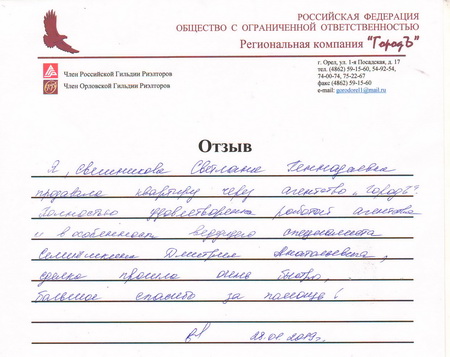 РОССИЙСКАЯ ФЕДЕРАЦИЯ
ОБЩЕСТВО С ОГРАНИЧЕННОЙ ОТВЕТСТВЕННОСТЬЮ
Региональная компания "ГородЪ"
Член Российской Гильдии Риэлторов
Член Орловской Гильдии Риэлторов
г. Орел, ул. 1-я Посадская, д. 17
тел. (4862) 59-15-60, 54-92-54,
74-00-74, 75-22-67
факс (4862) 59-15-60
e-mail: gorodorel1@mail.ru
Отзыв
Я, Свешникова Светлана Геннадьевна
продавала квартиру через агентство „Городъ".
Полностью удовлетворена работой агентства
и в особенности ведущего специалиста
Дмитрия Анатольевича,
сделка прошла очень быстро,
большое спасибо за помощь!
2019г.